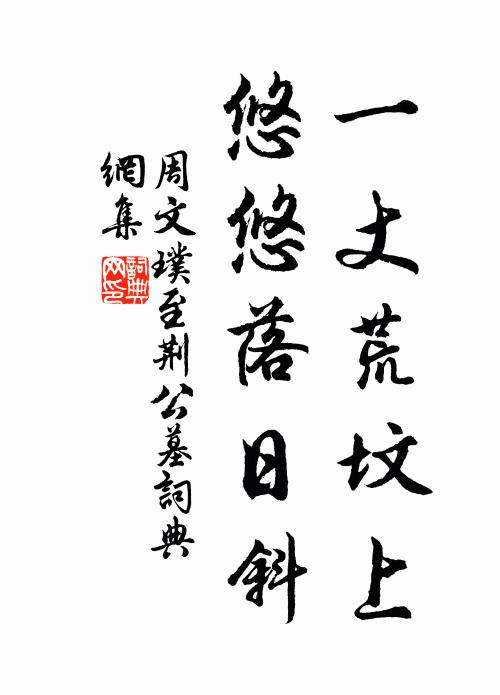 一丈荒坟上
悠悠落日斜
周文璞至荆公墓詞典
網集
詞典網印